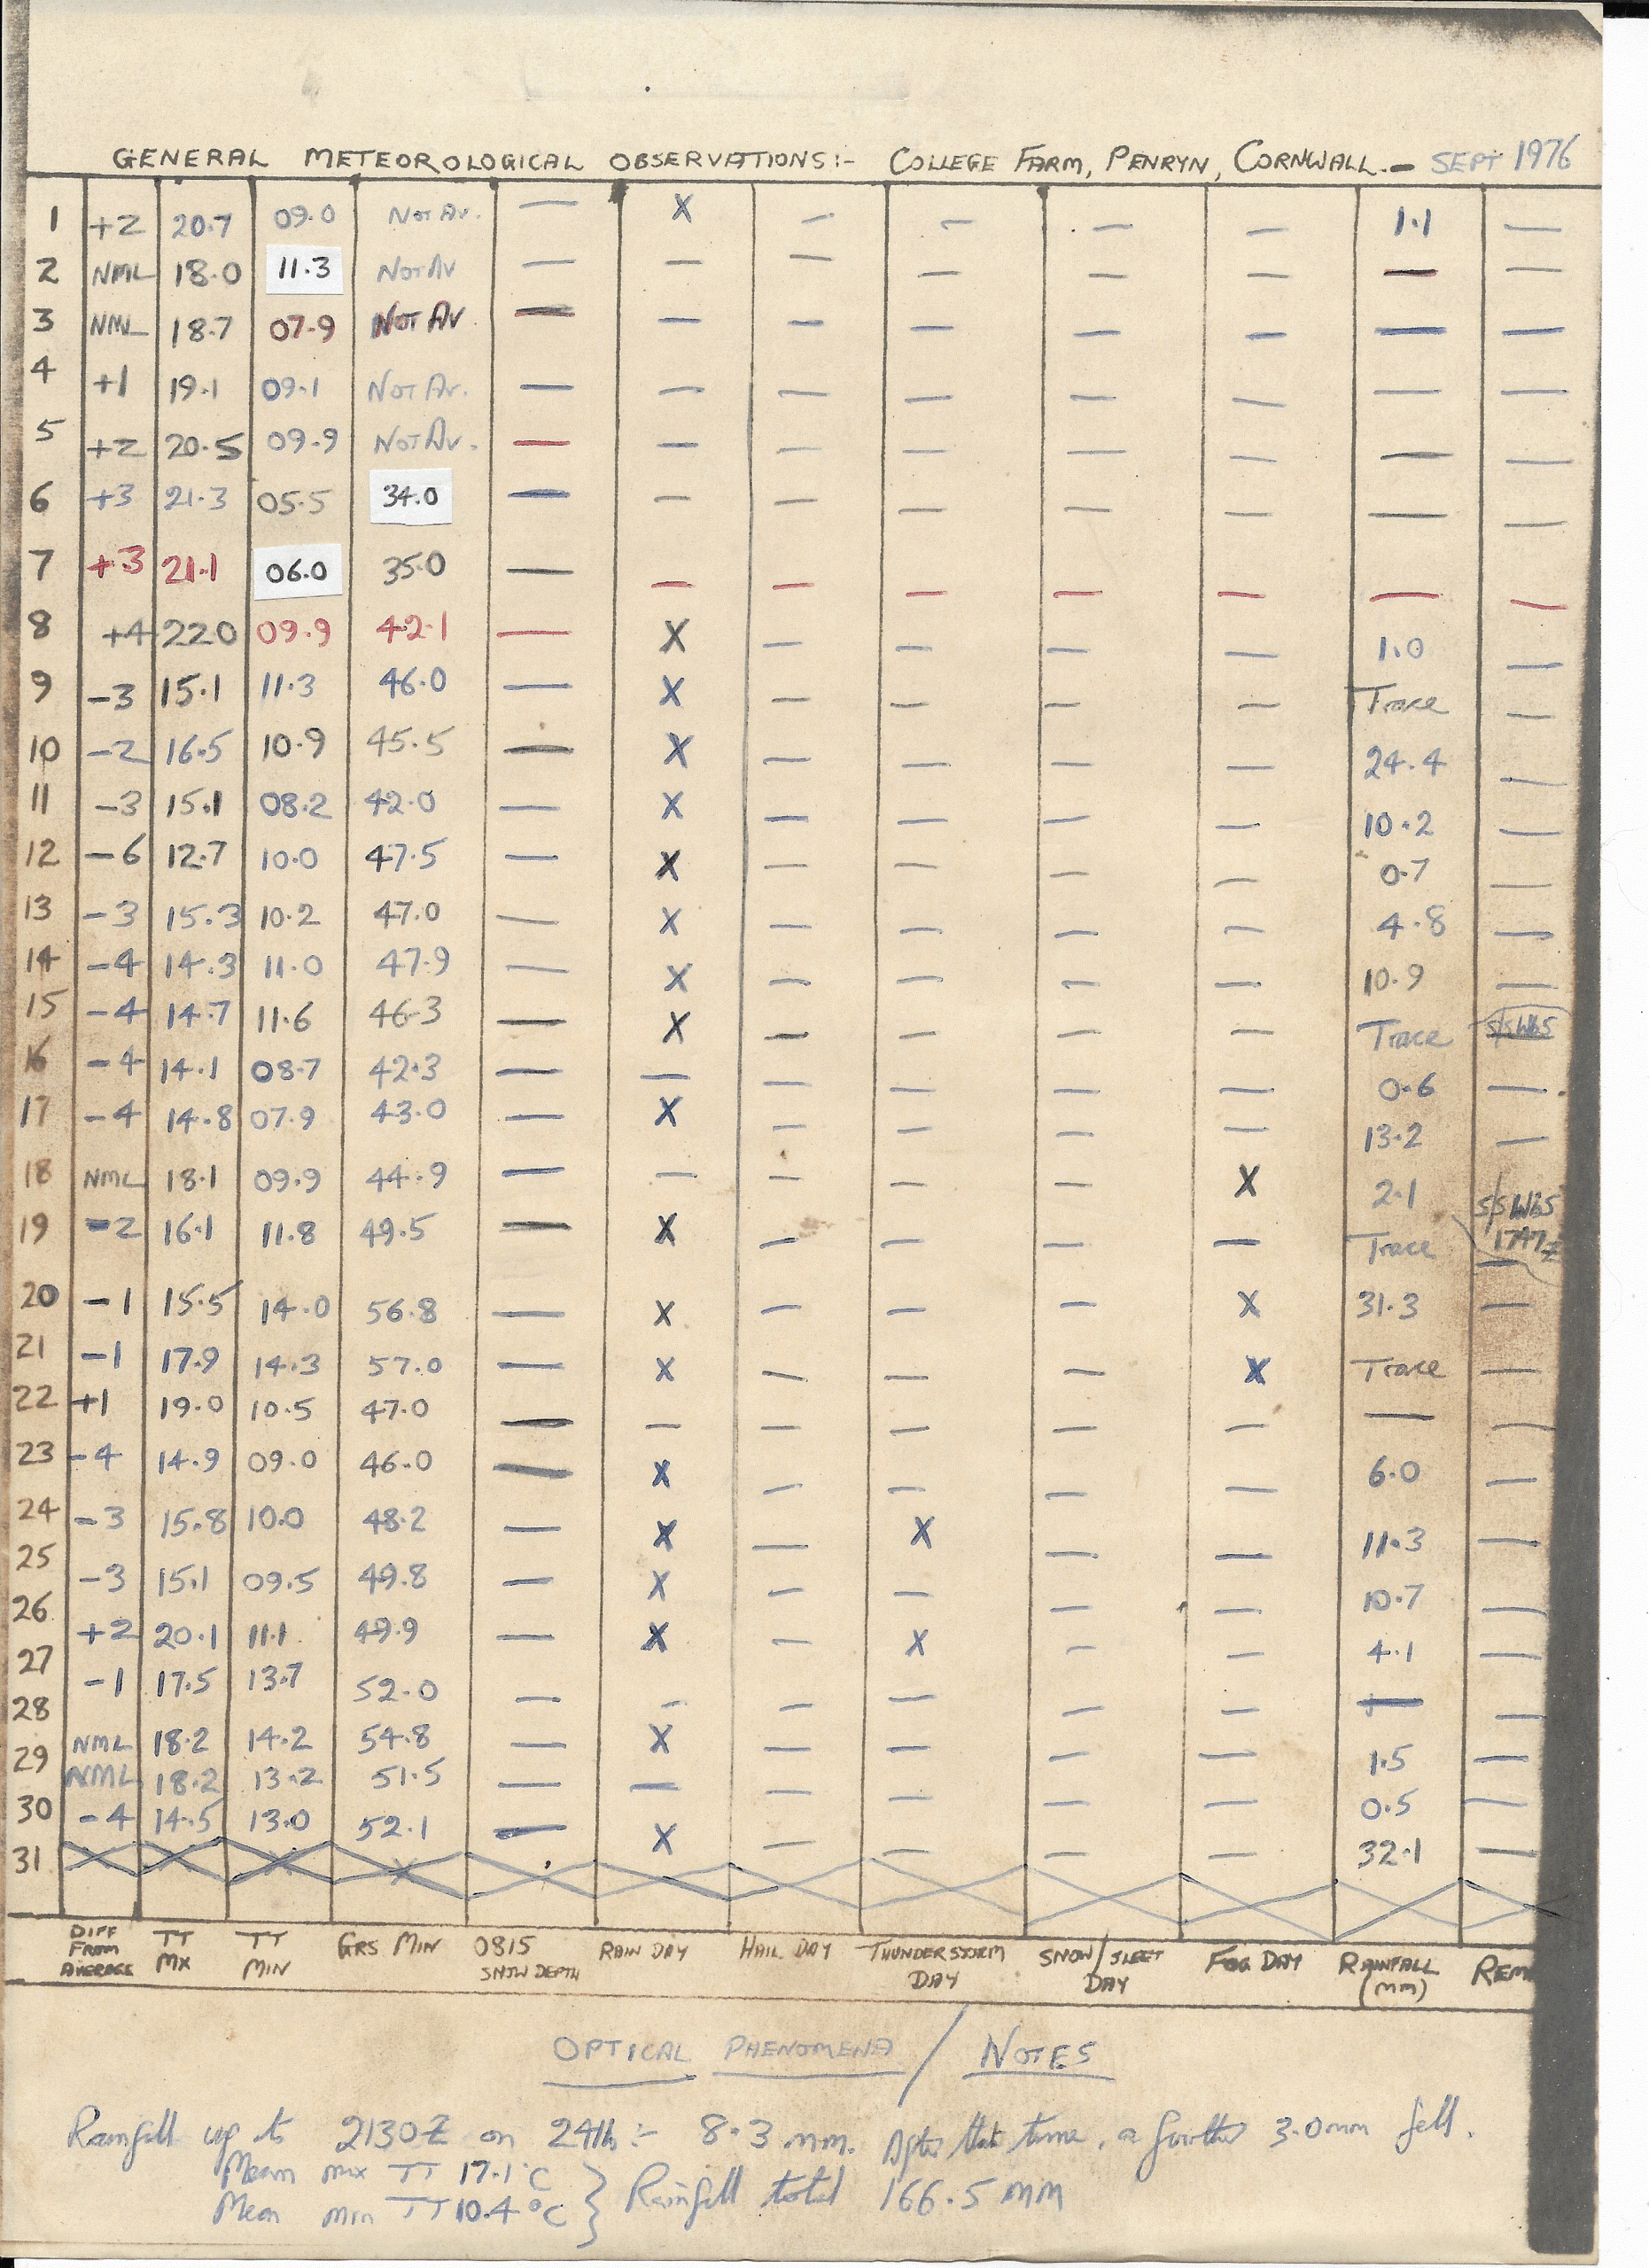 GENERAL METEOROLOGICAL OBSERVATIONS:- COLLEGE FARM, PENRYN, CORNWALL.- SEPT 1976
1 +2 20.7 09.0 NOT AV. — X — — — — 1.1 —
2 NML 18.0 11.3 NOT AV — — — — — — — —
3 NML 18.7 07.9 NOT AV — — — — — — — —
4 +1 19.1 09.1 NOT AV. — — — — — — — —
5 +2 20.5 09.9 NOT AV. — — — — — — — —
6 +3 21.3 05.5 34.0 — — — — — — — —
7 +3 21.1 06.0 35.0 — — — — — — — —
8 +4 22.0 09.9 42.1 — X — — — — 1.0 —
9 -3 15.1 11.3 46.0 — X — — — — Trace —
10 -2 16.5 10.9 45.5 — X — — — — 24.4 —
11 -3 15.1 08.2 42.0 — X — — — — 10.2 —
12 -6 12.7 10.0 47.5 — X — — — — 0.7 —
13 -3 15.3 10.2 47.0 — X — — — — 4.8 —
14 -4 14.3 11.0 47.9 — X — — — — 10.9 —
15 -4 14.7 11.6 46.3 — X — — — — Trace
16 -4 14.1 08.7 42.3 — — — — — — 0.6 —
17 -4 14.8 07.9 43.0 — X — — — — 13.2 —
18 NML 18.1 09.9 44.9 — — — — — X 2.1
19 -2 16.1 11.8 49.5 — X — — — — Trace 1747Z —
20 -1 15.5 14.0 56.8 — X — — — X 31.3 —
21 -1 17.9 14.3 57.0 — X — — — X Trace —
22 +1 19.0 10.5 47.0 — — — — — — — —
23 -4 14.9 09.0 46.0 — X — — — — 6.0 —
24 -3 15.8 10.0 48.2 — X — X — — 11.3 —
25 -3 15.1 09.5 49.8 — X — — — — 10.7 —
26 +2 20.1 11.1 49.9 — X — X — — 4.1 —
27 -1 17.5 13.7 52.0 — — — — — — — —
28 NML 18.2 14.2 54.8 — X — — — — 1.5 —
29 NML 18.2 13.2 51.5 — — — — — — 0.5 —
30 -4 14.5 13.0 52.1 — X — — — — 32.1 —
31
DIFF FROM AVERAGE TT MX TT MIN GRS MIN 0815 SNOW DEPTH RAIN DAY HAIL DAY THUNDERSTORM DAY SNOW/SLEET DAY FOG DAY RAINFALL (MM) REM
OPTICAL PHENOMENA / NOTES
Rainfall up to 2130Z on 24th :- 8.3 mm. After that time, a further 3.0mm fell.
Mean mx TT 17.1°C
Mean min TT 10.4°C } Rainfall total 166.5 MM